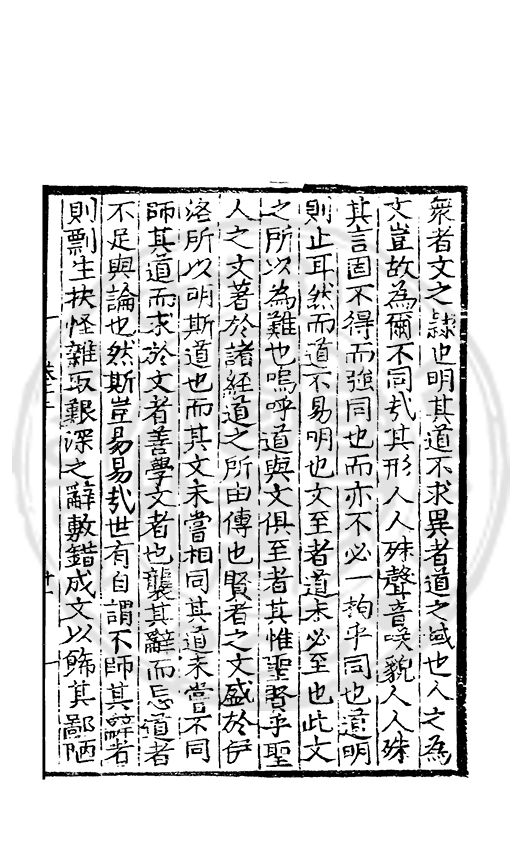 衆者文之隷也明其道不求異者道之域也人之為
文豈故為爾不同㢤其形人人殊聲音㗋貌人人殊
其言固不得而強同也而亦不必一拘乎同也道明
則止耳然而道不易明也文至者道未必至也此文
之所以為難也嗚呼道與文俱至者其惟聖賢乎聖
人之文著於諸經道之所由傳也賢者之文盛於伊
洛所以明斯道也而其文未嘗相同其道未嘗不同
師其道而求於文者善學文者也襲其辭而忘道者
不足與論也然斯豈易易㢤世有自謂不師其辭者
則剽生抉怪雜取艱深之辭敷錯成文以餙其鄙陋
卷之
十一